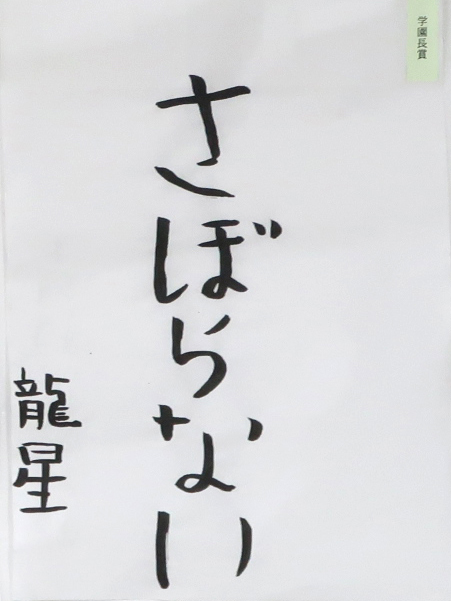 学園長賞
さぼらない
龍星